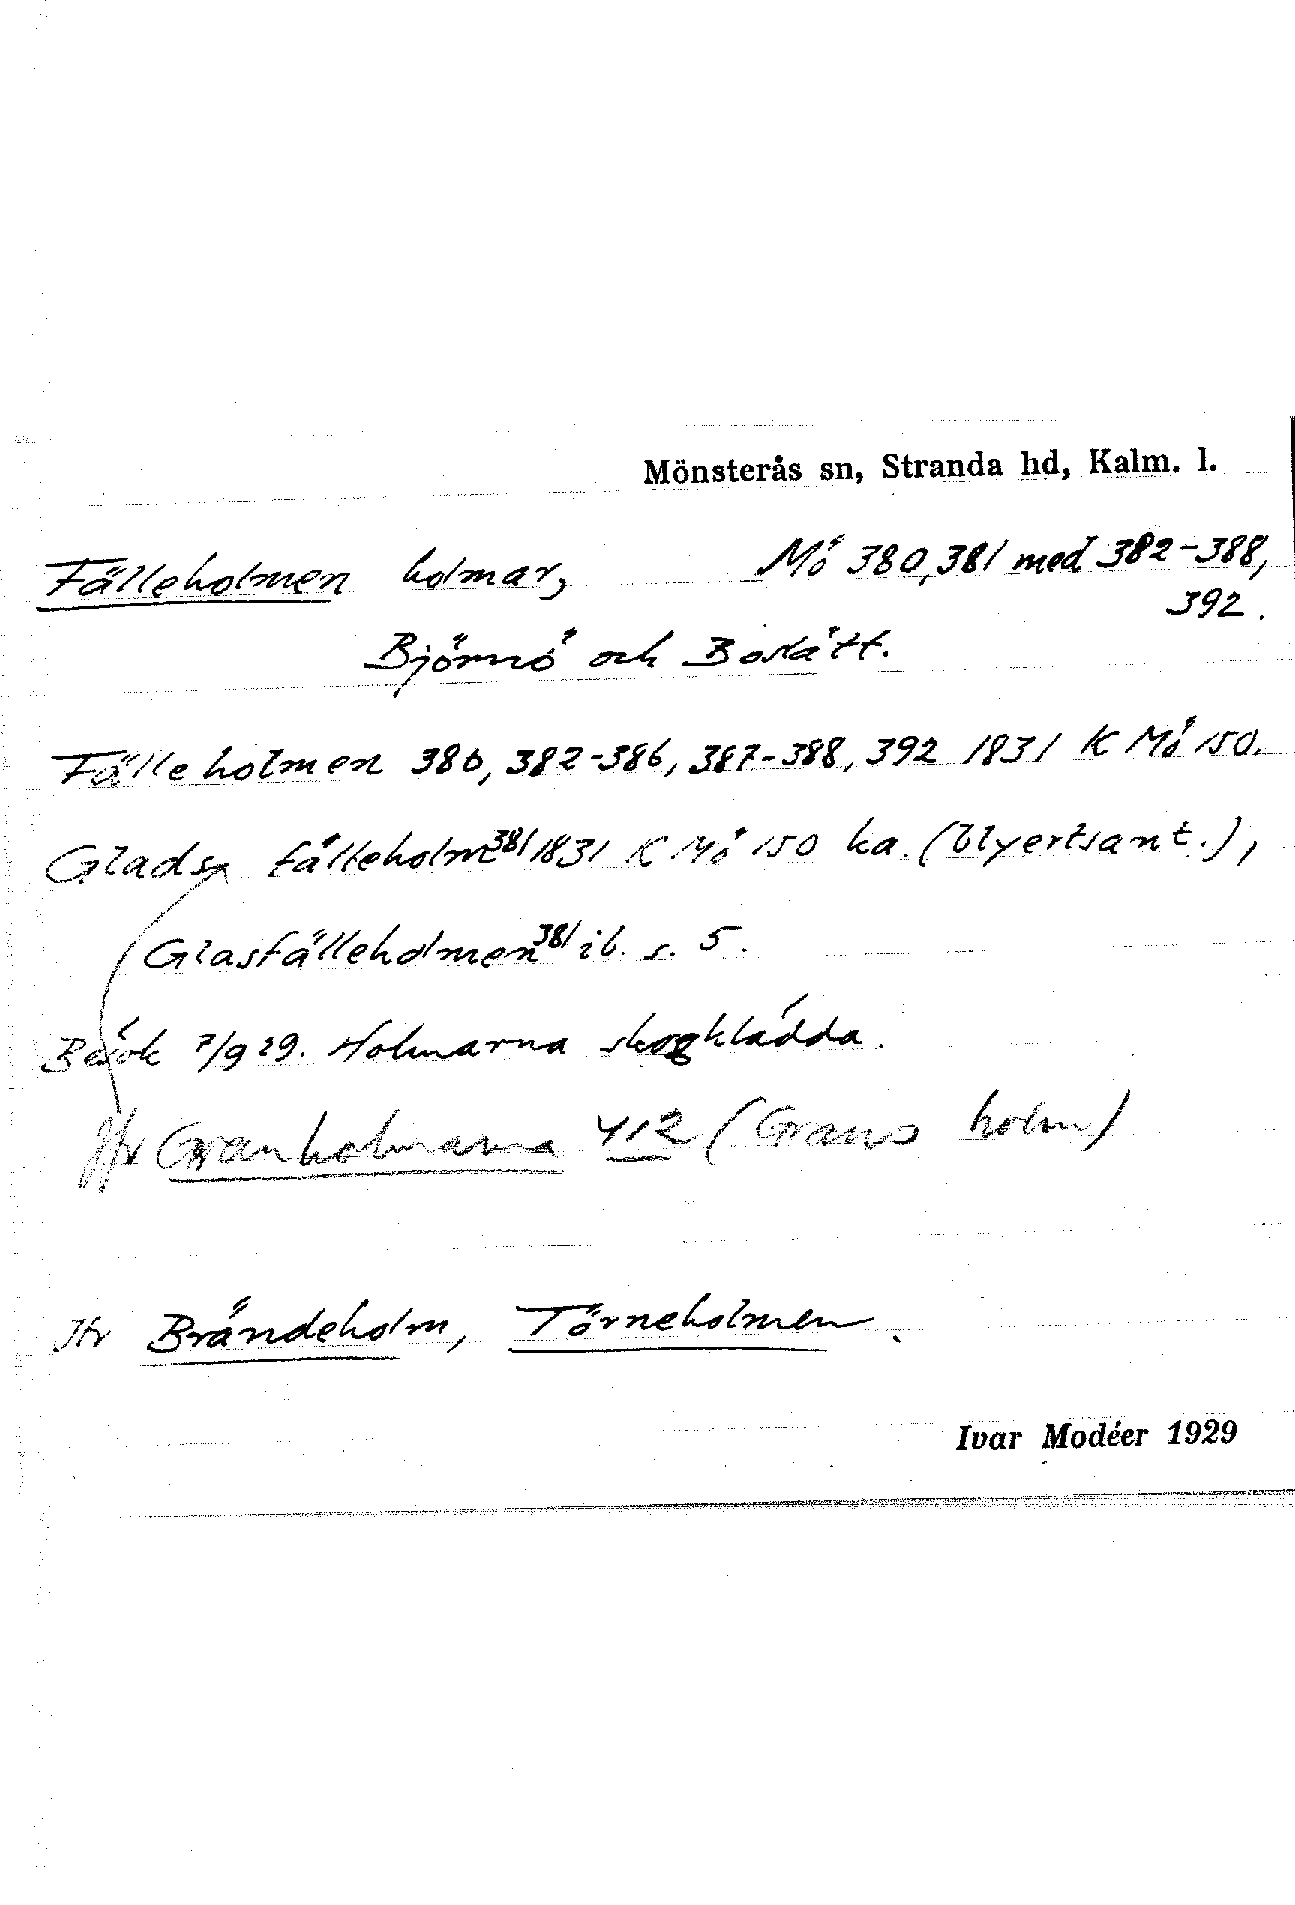 Mönsterås sn, Stranda hd, Kalm. l.
Fälleholmen holmar, Mö 380, 381 med 382-388,
392.
Björnö och Boslätt.
Fälleholmen 380, 382-386, 387-388, 392 1831 K Mö 150.
Glads fälleholm 381 1831 K Mö 150 ka. (blyertsant.),
Glasfälleholmen 381 ib. s. 5.
Besök 7/9 29. Holmarna skogklädda.
Jfr Granholmarna 412 (Grans holm)
Jfr Brändeholm, Törneholmen.
Ivar Modéer 1929